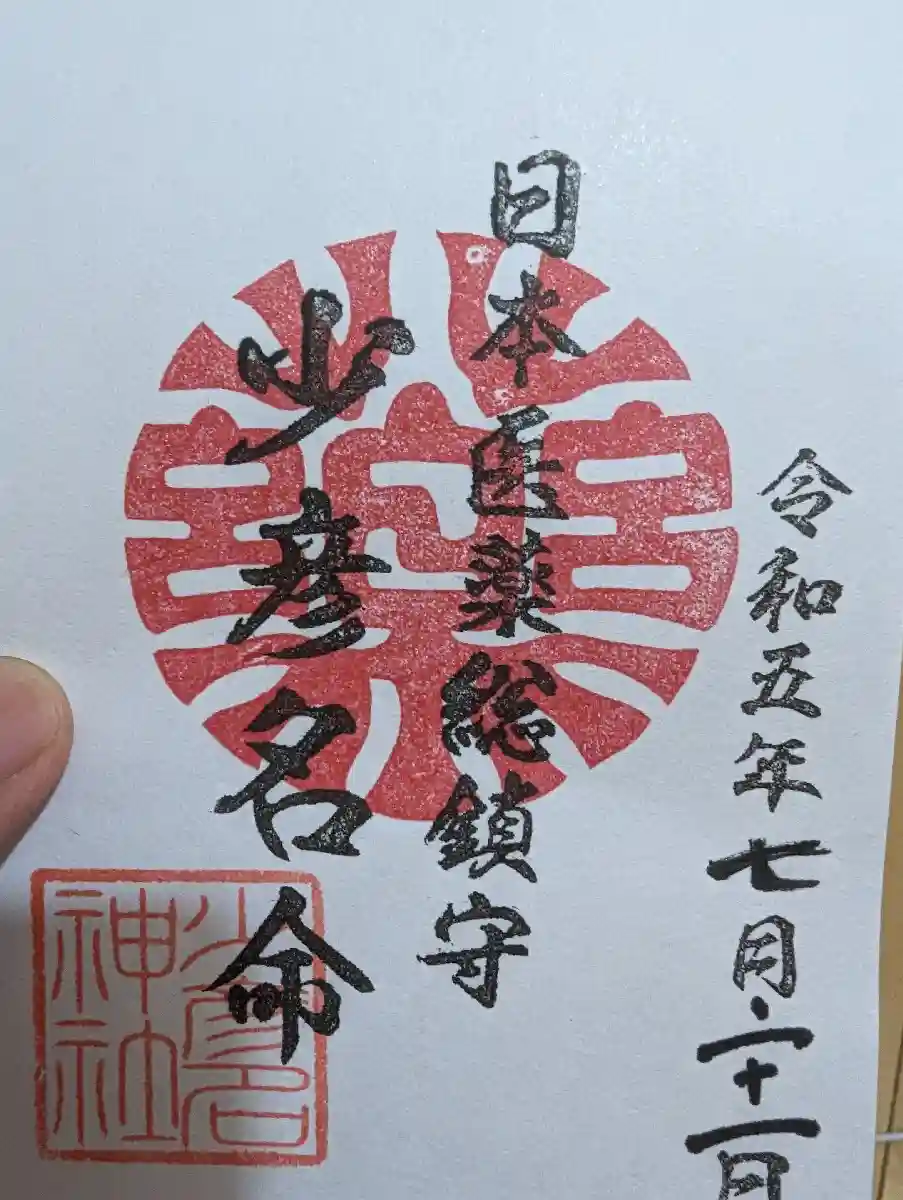 令和五年七月二十一日
日本医薬総鎮守
少彦名命
少彦名神社
薬